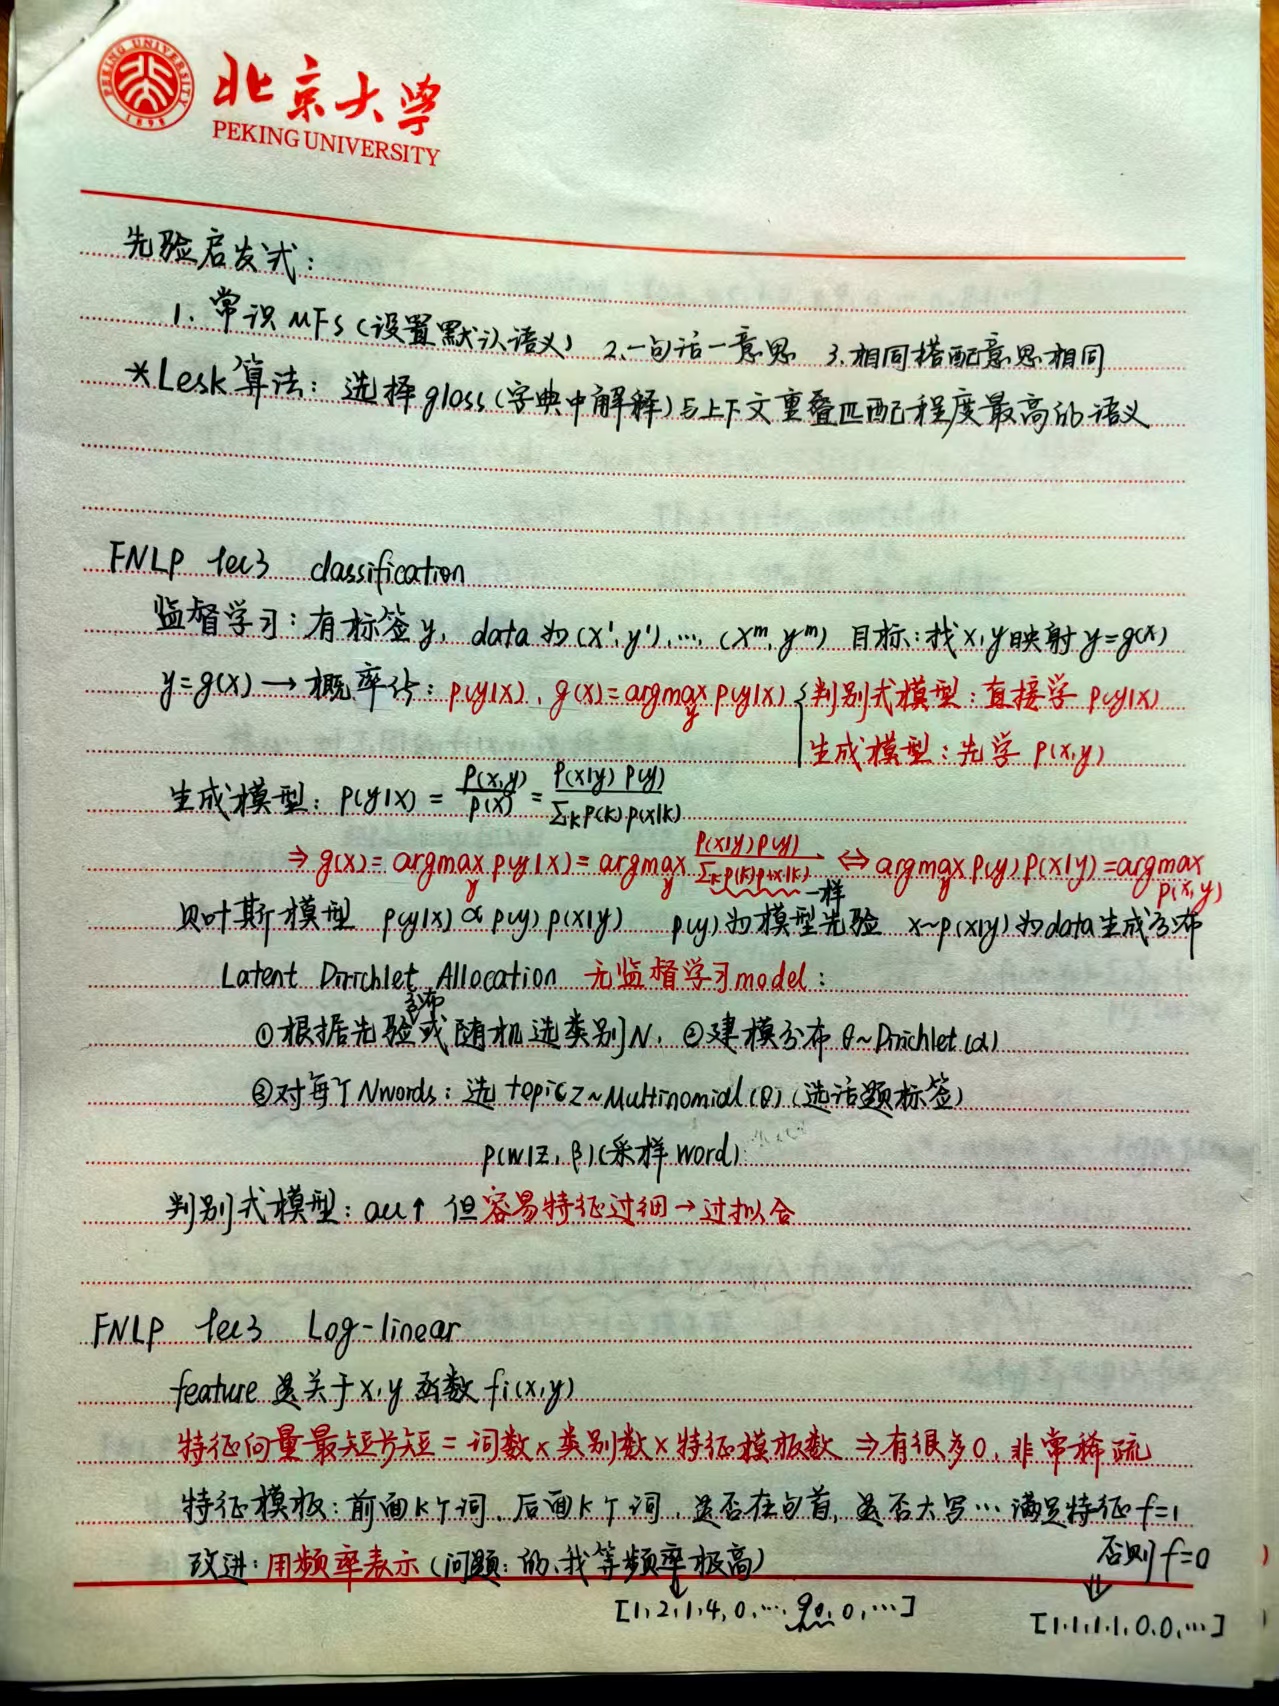 PEKING UNIVERSITY
1898
北京大学
PEKING UNIVERSITY
先验启发式:
1. 常识 MFS (设置默认语义) 2.一句话一意思 3.相同搭配意思相同
*Lesk算法: 选择 gloss (字典中解释) 与上下文重叠匹配程度最高的语义
FNLP lec3 classification
监督学习: 有标签 y, data 为 (x¹, y¹), …, (xᵐ, yᵐ) 目标: 找 x, y 映射 y=g(x)
y=g(x) → 概率化: p(y|x), g(x)=argmax_y p(y|x) { 判别式模型: 直接学 p(y|x)
生成模型: 先学 p(x,y)
生成模型: p(y|x) = p(x,y)/p(x) = p(x|y) p(y)/Σ_k p(k) p(x|k)
⇒ g(x) = argmax_y p(y|x) = argmax_y p(x|y) p(y)/Σ_k p(k) p(x|k) ⇔ argmax_y p(y) p(x|y) = argmax p(x,y)
一样
贝叶斯模型 p(y|x) ∝ p(y) p(x|y) p(y) 为模型先验 x~p(x|y) 为 data 生成分布
Latent Dirichlet Allocation 无监督学习 model:
①根据先验分布或随机选类别 N, ②建模分布 θ~Dirichlet(α)
③对每个 N words: 选 topic z~Multinomial(θ) (选话题标签)
p(w|z, β) (采样 word)
判别式模型: acc↑ 但容易特征过细→过拟合
FNLP lec3 Log-linear
feature 是关于 x, y 函数 fi(x,y)
特征向量最短为 = 词数 × 类别数 × 特征模板数 ⇒ 有很多 0, 非常稀疏
特征模板: 前面 k个词, 后面 k个词, 是否在句首, 是否大写… 满足特征 f=1
否则 f=0
改进: 用频率表示 (问题: 的、我等频率极高)
[1, 2, 1, 4, 0, …, 90, 0, …]
[1, 1, 1, 1, 0, 0, …]